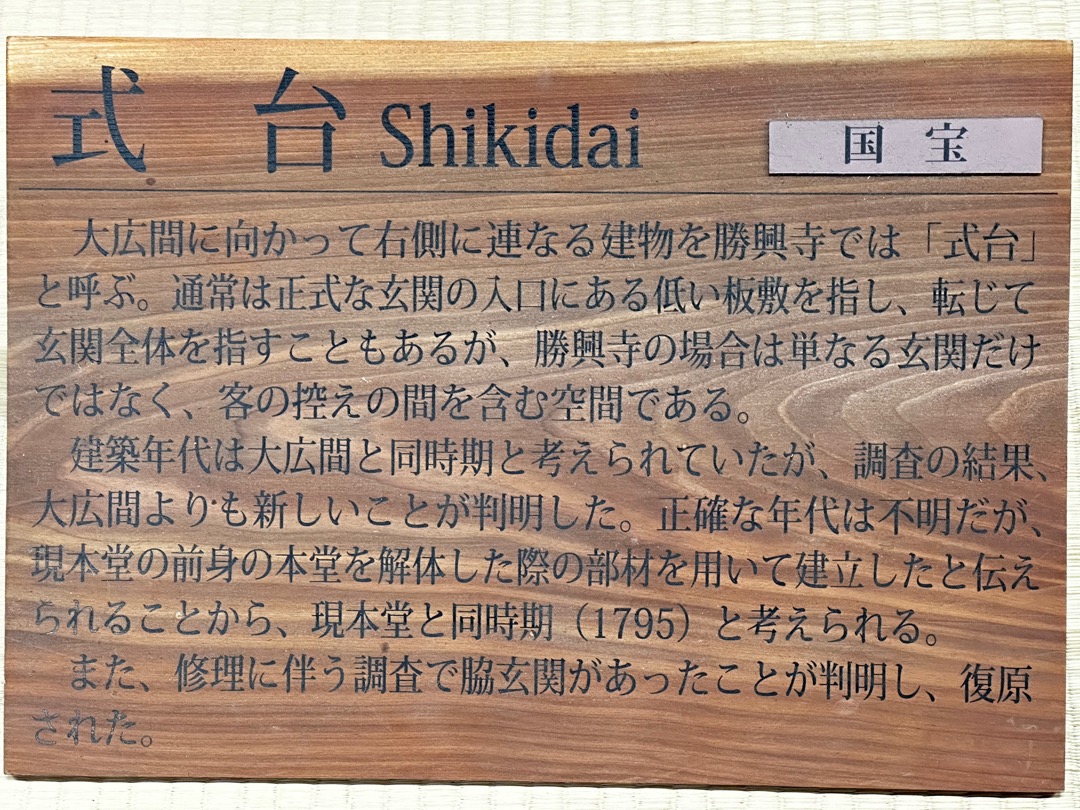 式台 Shikidai
国宝
大広間に向かって右側に連なる建物を勝興寺では「式台」
と呼ぶ。通常は正式な玄関の入口にある低い板敷を指し、転じて
玄関全体を指すこともあるが、勝興寺の場合は単なる玄関だけ
ではなく、客の控えの間を含む空間である。
建築年代は大広間と同時期と考えられていたが、調査の結果、
大広間よりも新しいことが判明した。正確な年代は不明だが、
現本堂の前身の本堂を解体した際の部材を用いて建立したと伝え
られることから、現本堂と同時期（1795）と考えられる。
また、修理に伴う調査で脇玄関があったことが判明し、復原
された。